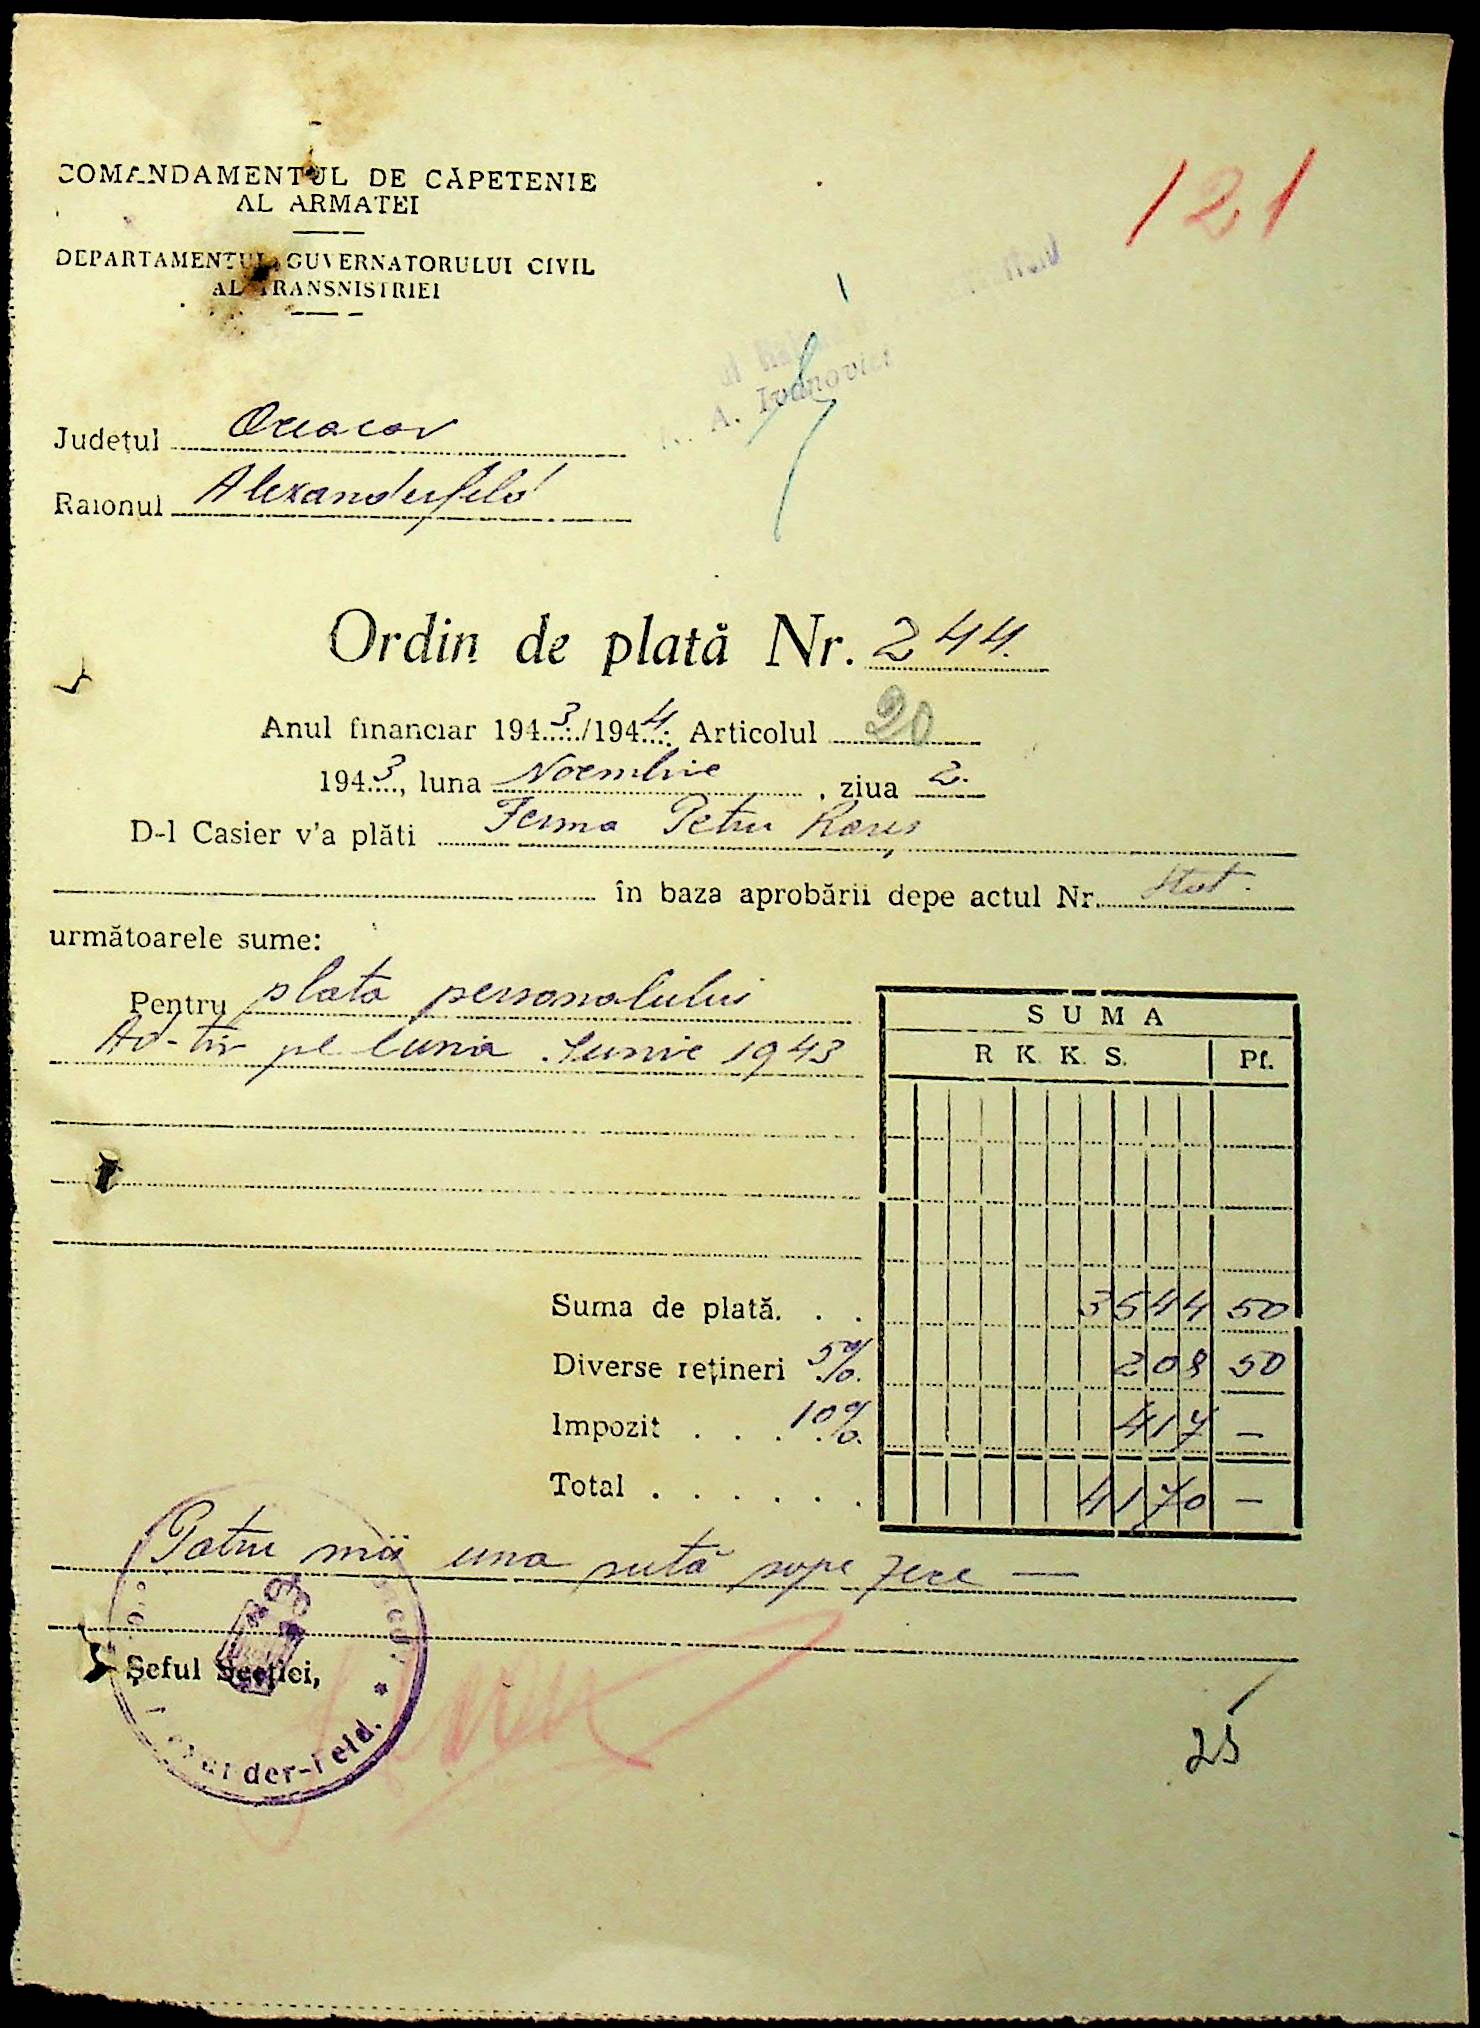 COMANDAMENTUL DE CĂPETENIE
AL ARMATEI
DEPARTAMENTUL GUVERNATORULUI CIVIL
AL TRANSNISTRIEI
121
A. Ivanovici
Județul Oceacov
Raionul Alexanderfeld
Ordin de plată Nr. 244.
Anul financiar 1943/1944. Articolul 20
1943, luna Noembrie, ziua 2.
D-l Casier v'a plăti Ferma Petru Rareș
în baza aprobării depe actul Nr. Stat.
următoarele sume:
Pentru plata personalului
Ad-tiv pe luna Iunie 1943
SUMA
R K. K. S. Pf.
Suma de plată. . . 3544 50
Diverse rețineri 5% 208 50
Impozit . . . 10% 417 —
Total . . . . . . 4170 —
Patru mii una sută șapte zece —
Șeful Secției,
der-Feld. *
25